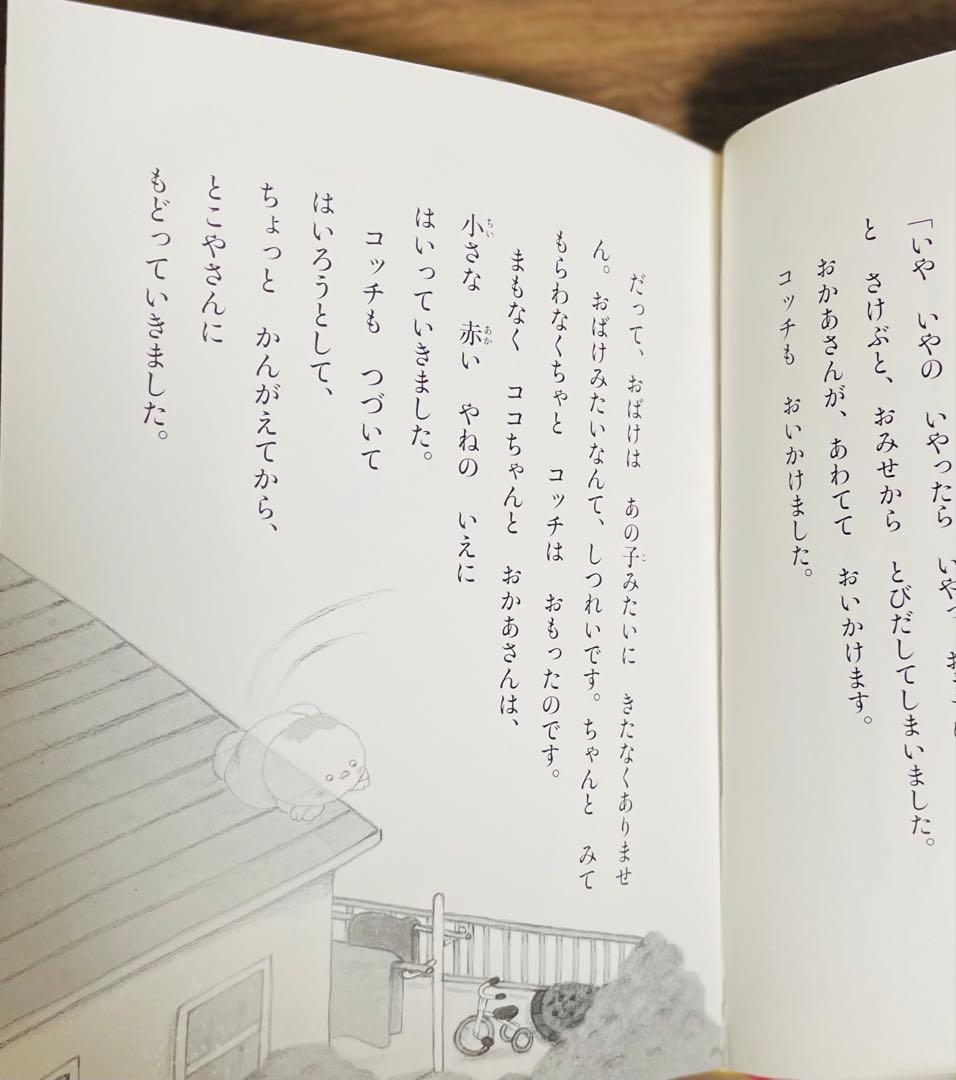 「いや　いやの　いやったら
と　さけぶと、おみせから　とびだしてしまいました。
おかあさんが、あわてて　おいかけます。
コッチも　おいかけました。
だって、おばけは　あの子みたいに　きたなくありませ
ん。おばけみたいなんて、しつれいです。ちゃんと　みて
もらわなくちゃと　コッチは　おもったのです。
まもなく　ココちゃんと　おかあさんは、
小さな　赤い　やねの　いえに
はいっていきました。
コッチも　つづいて
はいろうとして、
ちょっと　かんがえてから、
とこやさんに
もどっていきました。